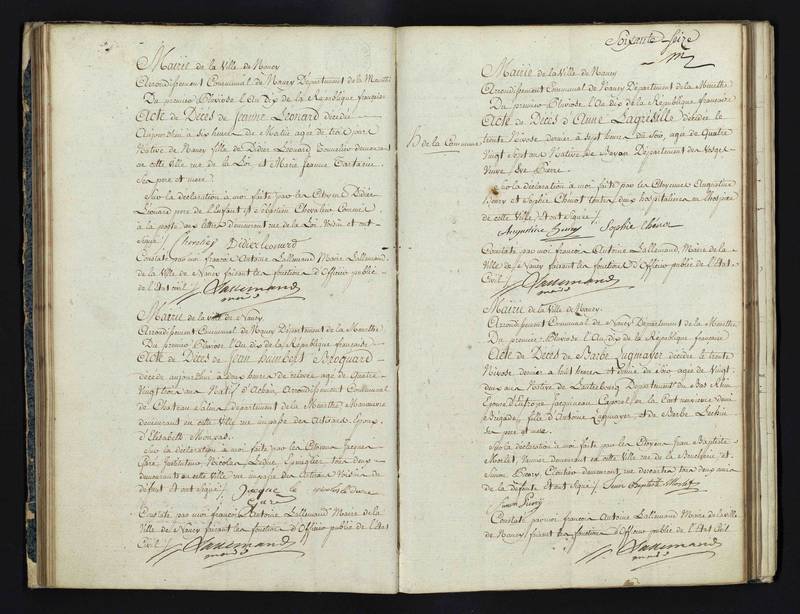 Mairie de la Ville de Nancy
Arrondissement Communal de Nancy Département de la Meurthe
Du premier Pluviose l'An dix de la République française
Acte de Décès de Jeanne Léonard décédée
Aujourd'hui à six heures de Matin agée de trois jours
Native de Nancy fille de Didier Léonard demeurant
en cette Ville rue de la Loi, et Marie Jeanne
Ses pere et mere.
Sur la déclaration à moi faite par les Citoyens Didier
Léonard pere de l'enfant et Sébastien Chevalier Commis
à la poste aux lettres demeurant rue de la Loi, Voisin et ont
Signé / Didier Leonard
Constaté par moi françois Antoine Lallemand Maire
de la Ville de Nancy faisant les fonctions d'Officier public
de l'état civil / Lallemand
maire
Mairie de la Ville de Nancy
Arrondissement Communal de Nancy Département de la Meurthe
Du premier Pluviose l'An dix de la République française
Acte de Décès de Jean humbert Broquard
décédé aujourd'hui à heures de relevée agé de Quatre
Vingt trois ans Natif d'Achain Arrondissement Communal
de Chateau Salins département de la Meurthe Manoeuvre
demeurant en cette Ville rue impasse des Artisans Epoux
d'Elisabeth
Sur la déclaration à moi faite par les Citoyens Jacques
Instituteur Nicolas tous deux
demeurants en cette Ville rue impasse des Artisans Voisins du
défunt et ont signé /
Constaté par moi françois Antoine Lallemand Maire de la
Ville de Nancy faisant les fonctions d'Officier public de l'Etat
Civil / Lallemand
maire
Soixante Seize
Mairie de la Ville de Nancy
Arrondissement Communal de Nancy Département de la Meurthe
Du premier Pluviose l'An dix de la République française
Acte de Décès d'Anne Lagresille décédée le
de la Commune
trente Nivose dernier à sept heures du Soir, agée de Quatre
Vingt Sept ans Native de Bayon Département des Vosges
Veuve de Pierre
Sur la déclaration à moi faite par les Citoyennes Augustine
henry et Sophie toutes deux hospitalieres en l'hospice
de cette Ville, et ont Signé /
Augustine henry Sophie
Constaté par moi françois Antoine Lallemand, Maire de la
Ville de Nancy faisant les fonctions d'Officier public de l'Etat
Civil / Lallemand
maire
Mairie de la Ville de Nancy
Arrondissement Communal de Nancy Département de la Meurthe
Du premier Pluviose l'An dix de la République française
Acte de Décès de Barbe Lugmayer décédée le trente
Nivose dernier à huit heures et demie du Soir agée de Vingt
deux ans Native de Lauterbourg Département du Bas Rhin
Epouse d' Jacquineau Caporal en la Cent onzieme demi
Brigade, fille d'Antoine Lugmayer et de Barbe
ses pere et mere.
Sur la déclaration à moi faite par les Citoyens Jean Baptiste
Morlot demeurant en cette Ville rue de la Boucherie et
Simon demeurant rue tous deux amis
de la défunte et ont signé / Jean Baptiste Morlot
Simon
Constaté par moi françois Antoine Lallemand Maire de la Ville
de Nancy faisant les fonctions d'Officier public de l'Etat Civil
Lallemand
maire